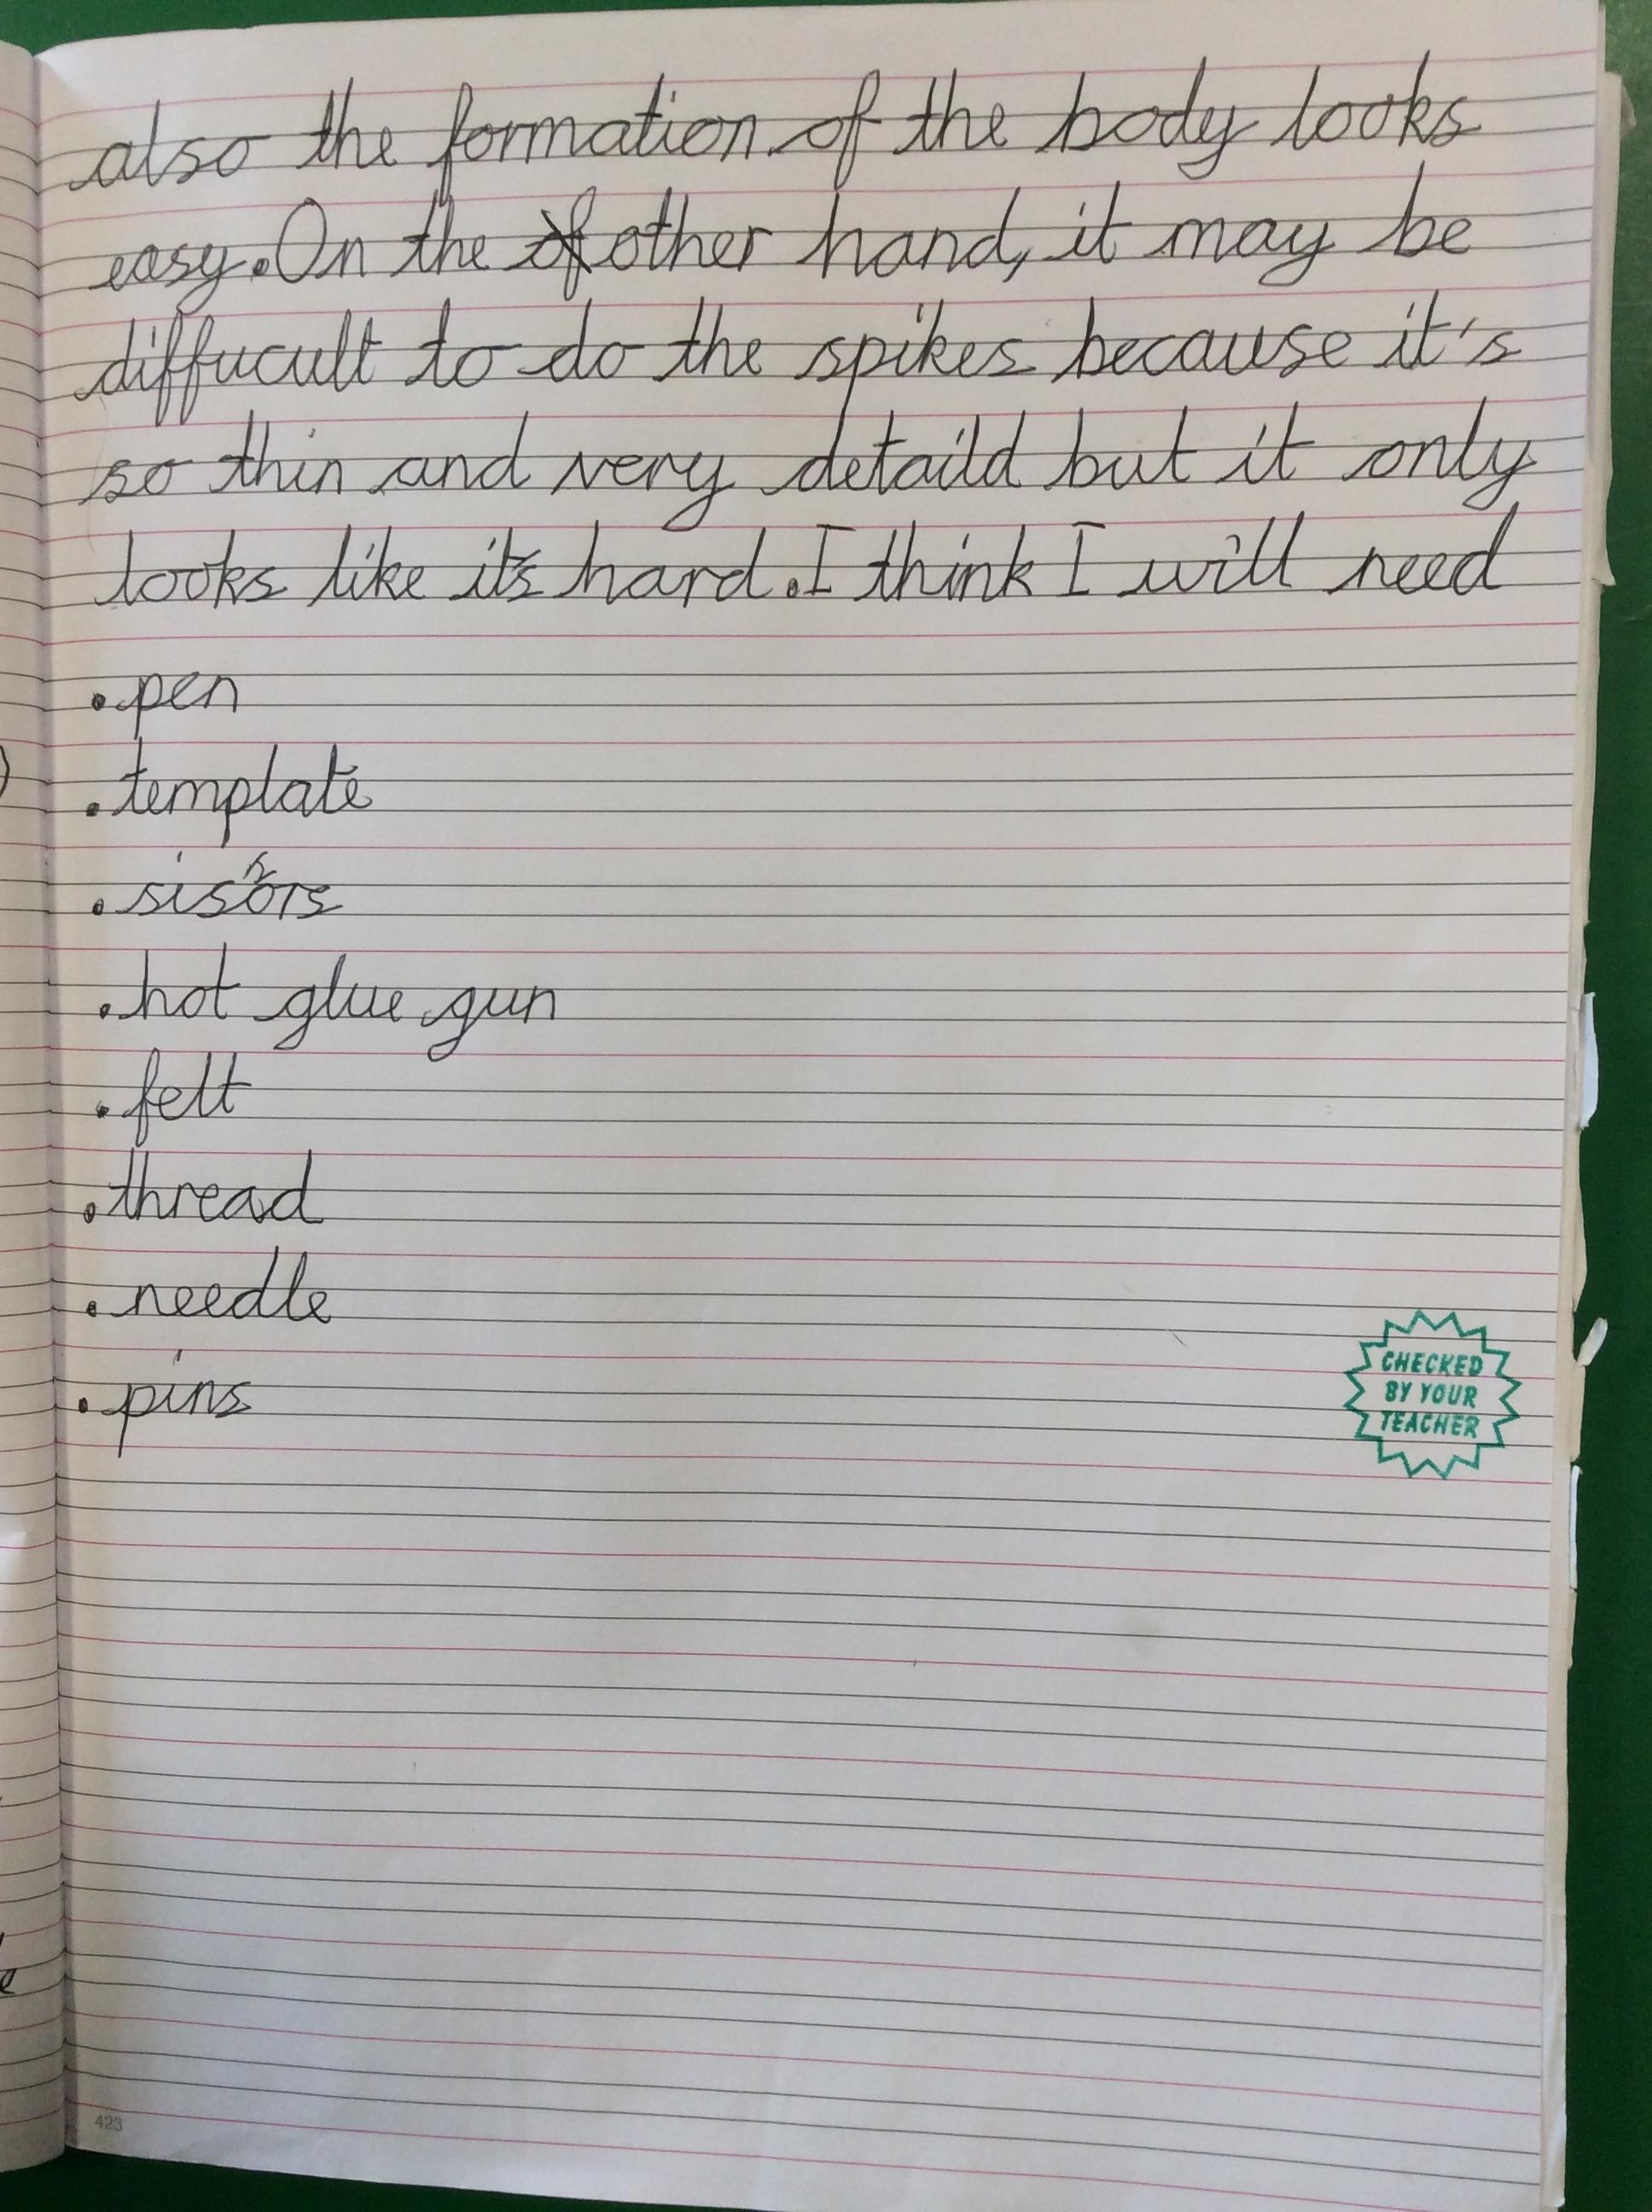 also the formation of the body looks
easy. On the of other hand, it may be
diffucult to do the spikes because it's
so thin and very detaild but it only
looks like it's hard. I think I will need
• pen
• template
• sisors
• hot glue gun
• felt
• thread
• needle
• pins
CHECKED
BY YOUR
TEACHER
423